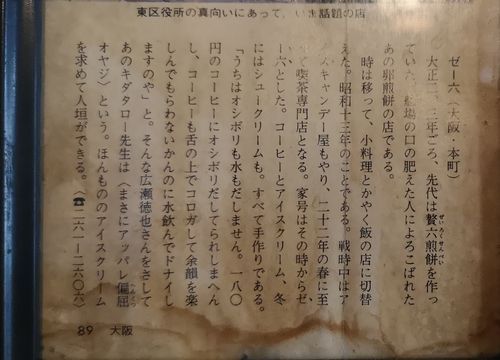 東区役所の真向いにあって、いま話題の店
ゼー六（大阪・本町）
大正二、三年ごろ、先代は贅六煎餅を作っ
ぜいろくせんべい
てい 船場の口の肥えた人によろこばれた
あの卵煎餅の店である。
時は移って、小料理とかやく飯の店に切替
えた。昭和十三年のことである。戦時中はア
スキャンデー屋もやり、二十二年の春に至
って喫茶専門店となる。家号はその時からゼ
ー六とした。コーヒーとアイスクリーム、冬
にはシュークリームも。すべて手作りである。
「うちはオシボリも水もだしません。一八〇
円のコーヒーにオシボリだしてられしまへん
し、コーヒーも舌の上でコロガして余韻を楽
しんでもらわないかんのに水飲んでドナイし
ますのや」と。そんな広瀬徳也さんをさして
あのキダタロー先生は〈まさにアッパレ偏屈
へんくつ
オヤジ〉という。ほんもののアイスクリーム
を求めて人垣ができる。（☎二六一―二六〇六）
89 大阪